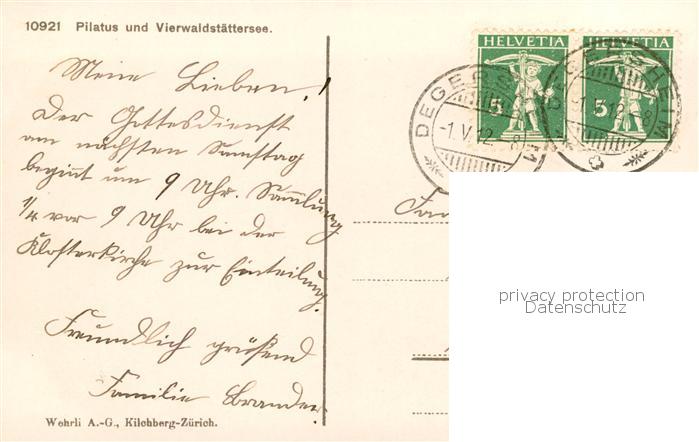 10921 Pilatus und Vierwaldstättersee.
Meine Lieben!
Der Gottesdienst
am nächsten Samstag
beginnt um 9 Uhr. Sammlung
1/4 vor 9 Uhr bei der
Klosterkirche zur Einteilung.
Freundlich grüßend
Familie Brander.
Wehrli A.-G., Kilchberg-Zürich.
HELVETIA
5
HELVETIA
5
DEGERSHEIM
-1.V.12.-8
DEGERSHEIM
-1.V.12.-8
privacy protection
Datenschutz